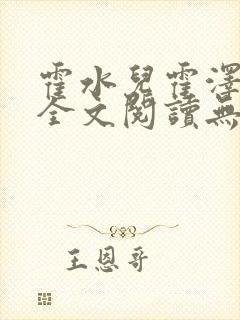 霍水兒霍澤
全文閱讀無
王恩哥